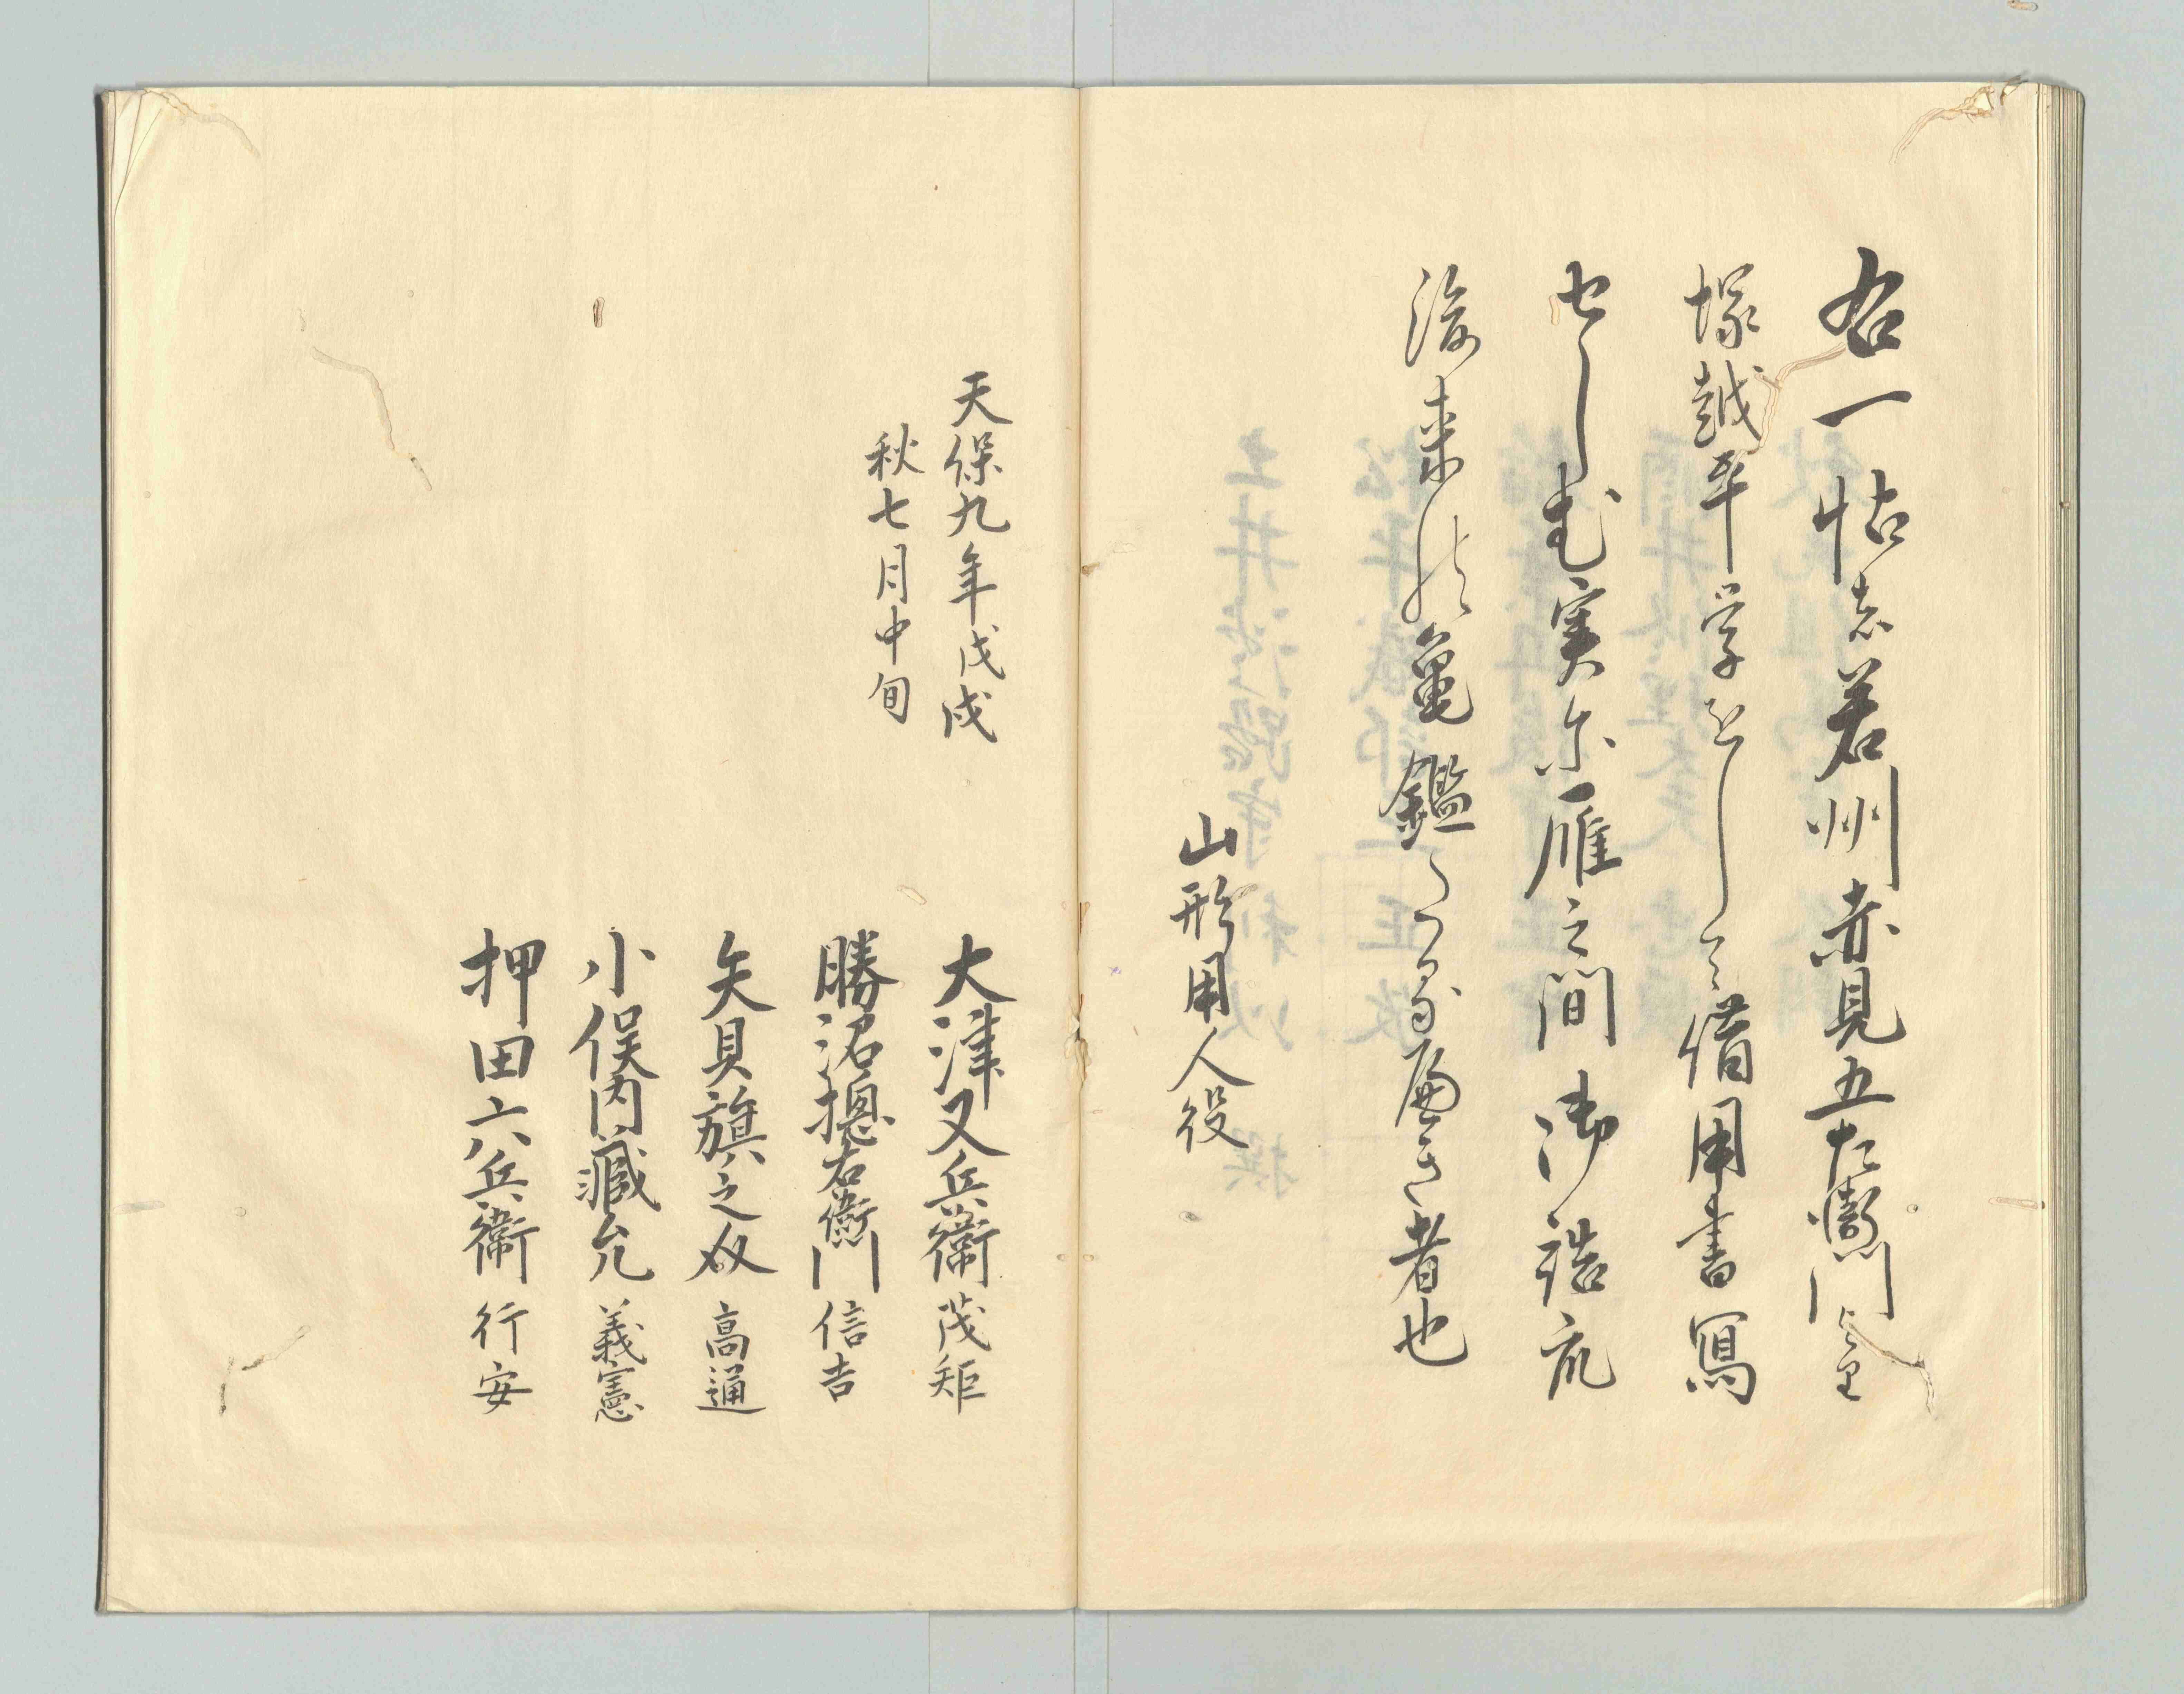 右一帖者若州赤見五左衛門ゟ
塚越平学をして借用書寫
せしむ実尓雁之間御詰
後来の亀鑑たる遍き者也
山形用人役
天保九年戊戌
秋七月中旬
大津又兵衛茂矩
勝沼摠右衛門信吉
矢貝旗之
高通
小俣内蔵允義憲
押田六兵衛行安